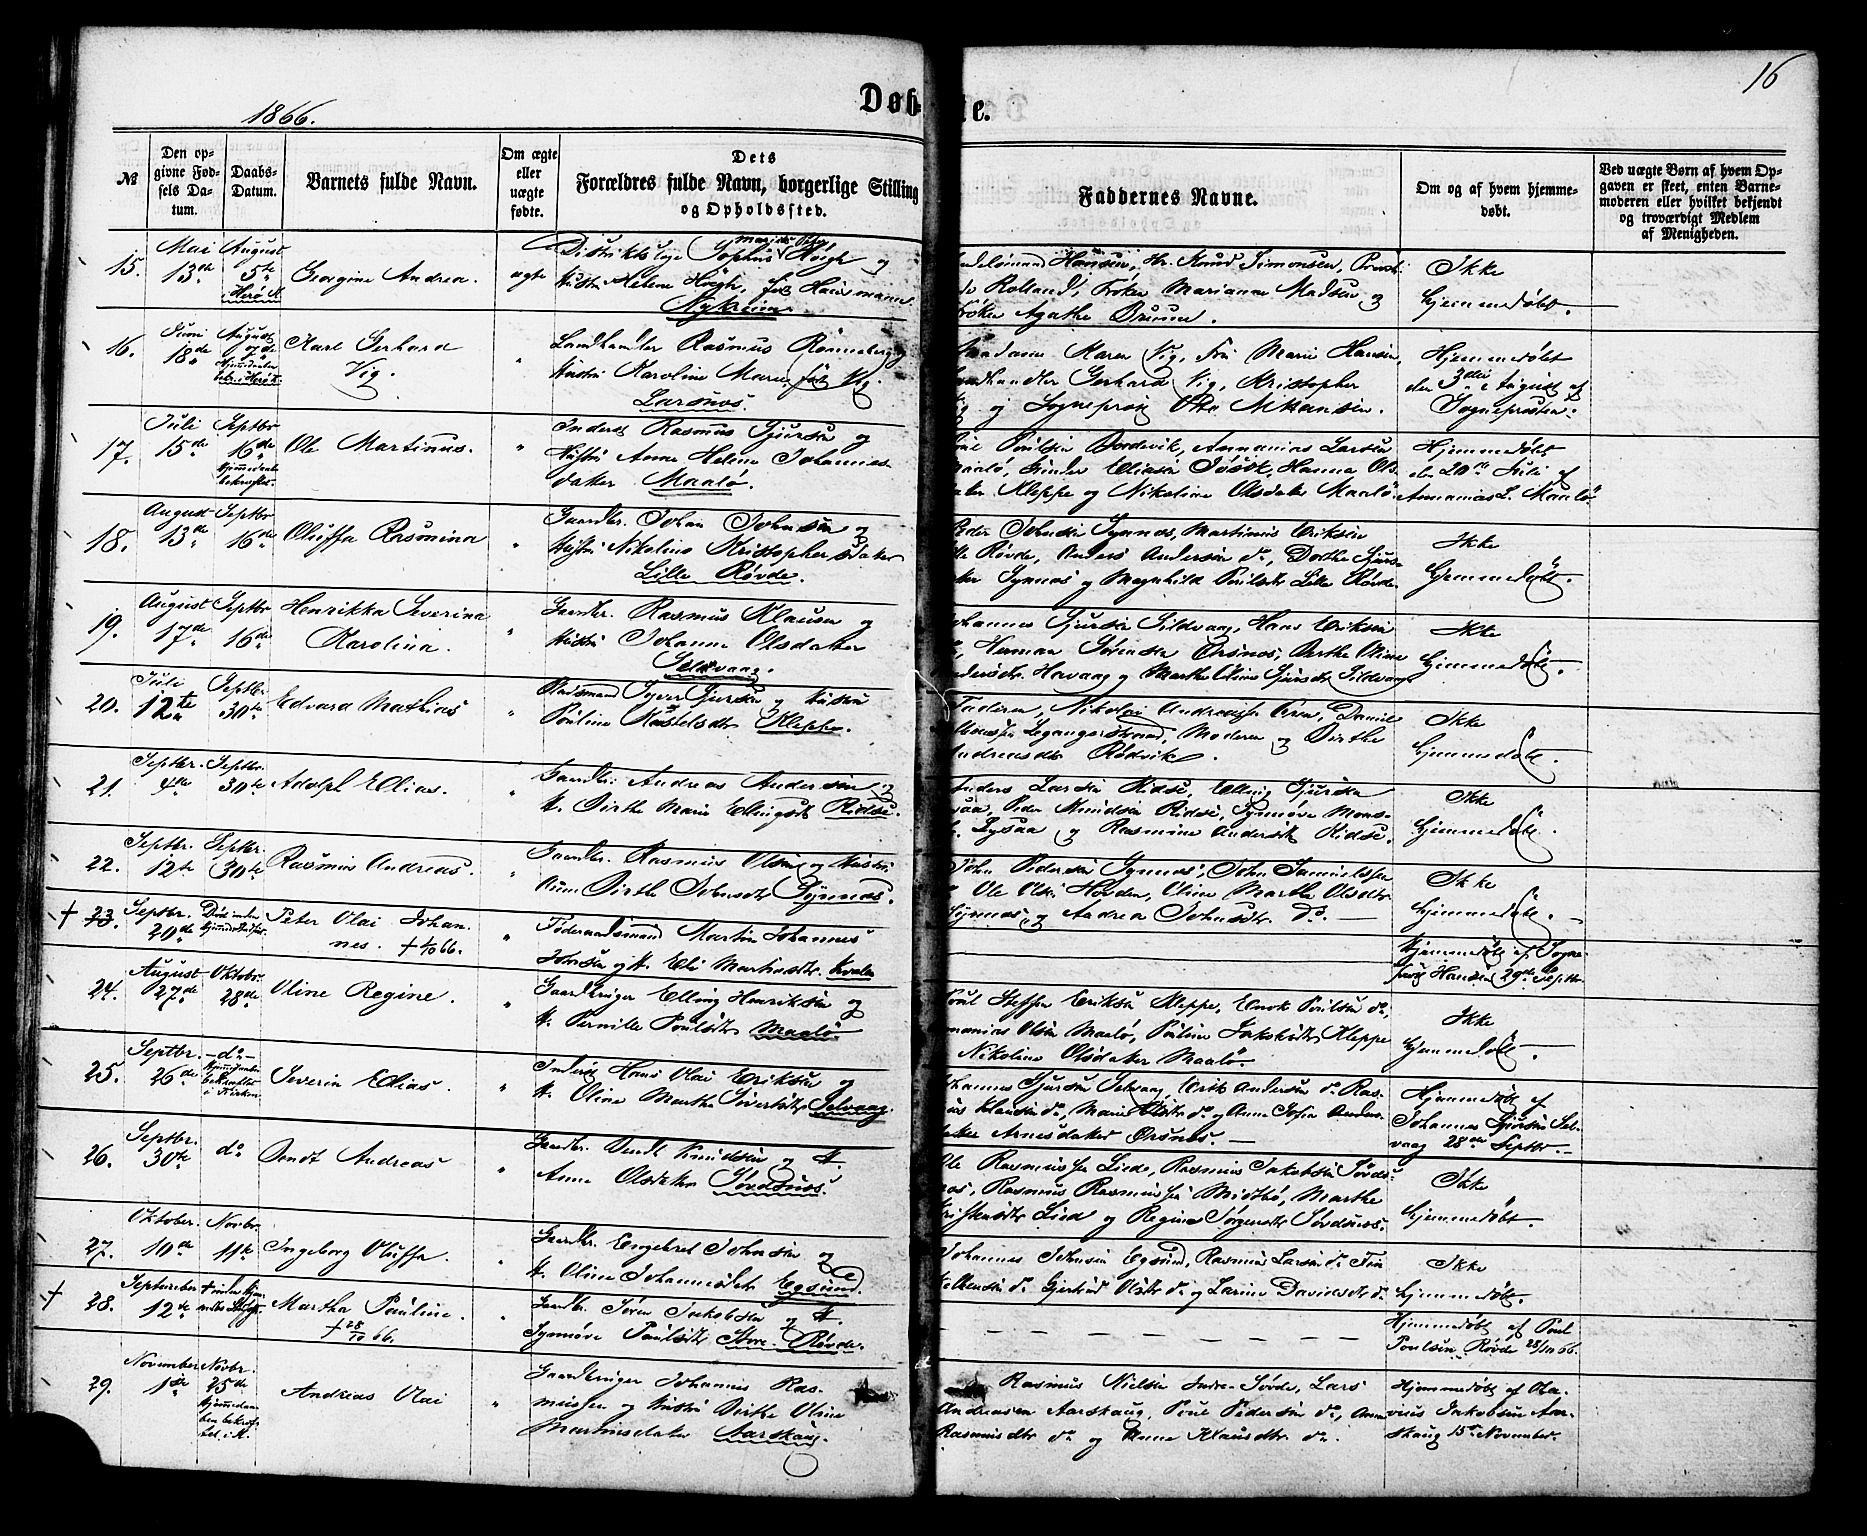 1866.
Døb
te.
16
№
Den opgivne Fødsels Datum.
Daabs-Datum.
Barnets fulde Navn.
Om ægte eller uægte fødte.
Dets Forældres fulde Navn, borgerlige Stilling og Opholdssted.
Faddernes Navne.
Om og af hvem hjemmedøbt.
Ved uægte Børn af hvem Opgaven er skeet, enten Barnemoderen eller hvilket bekjendt og troværdigt Medlem af Menigheden.
15. Mai 13de August 5te Herø K. Georgine Andrea. ægte Distriktslæge Sophus Høigh og
Hustru Helene Høigh, født Hausmann
Hansen, Hr. Knud Simonsen,
Rolland, Frøken Marianne Madsen og
Frøken Agathe Bruun.
Ikke
hjemmedøbt.
16. Juni 18de August Karl Gerhard
Vig.
" Landhandler Rasmus Rønneberg og
Hustru Karoline Marie født Vig.
Larsnæs.
Madame Maren Vig, Fru Marie Hansen,
Landhandler Gerhard Vig, Kristopher
Vig og Sogneprest
Hjemmedøbt
den 3die August af
Sognepresten.
17. Juli 15de Septbr 16de Ole Martinus. "
Inderst Rasmus Sjursen og
Hustru Anne Helene Johannes-
datter Maalø.
Poul Poulsen Annanias Larsen
Maalø, Elias Hanna Ols-
datter Kleppe og Nikoline Olsdatter Maalø.
Hjemmedøbt
den 20de Juli af
Annanias L. Maalø
18. August 13de Septbr 16de Oluffa Rasmina "
Gaardbr. Johan Johnsen og
Hustru Nikoline Kristophersdatter
Lille Røvde.
Peder Johnsen Synnæs, Martinus Eriksen
Lille Røvde, Anders Andersen do, Dorthe Sjurs-
datter Synnæs og Magnhild Poulsdtr Lille Røvde
Ikke
hjemmedøbt.
19. August 17de Septbr 16de Henrikka Severina
Karolina.
" Gaardbr. Rasmus Klausen og
Hustru Johanne Olsdatter
Selvaag.
Johannes Sjursen Sildvaag, Hans Eriksen
do, Herman Sørensen Ørsnæs, Berthe Oline
og Marthe Oline Sjursdtr Sildvaag
Ikke
hjemmedøbt.
20. Juli 12te Septbr. 30te Edvard Mathias "
Pladsmand Syver Sjursen og Hustru
Pouline Kleppe.
Faderen, Nikolai Andreassen Daniel
Moderen og Birthe
Andreasdtr Rødvik.
Ikke
hjemmedøbt.
21. Septbr. 4de Septbr. 30te Adolph Elias. "
Gaardbr. Andreas Andersen og
H. Birthe Marie Ellingsdtr Ridse.
Anders Larsen Ridse, Elling Sjursen
Lysaa, Peder Knudsen Ridse, Synnøve Mons-
dtr. Lysaa og Rasmine Andersdtr Ridse.
Ikke
hjemmedøbt.
22. Septbr. 12te Septbr. 30te Rasmus Andreas. "
Gaardbr. Rasmus Olsen og Hustru
Birthe Johnsdtr Synnæs.
John Pedersen Synnæs, John Samuelssen
do Ole Olsen Hovden, Oline Marthe Olsdtr
Synnæs, og Andrea Johnsdtr. do. —
Ikke
hjemmedøbt. —
† 23. Septbr. 20de Peter Olai Johan-
nes. † 4/10 66.
" Føderaadsmand Martin Johannes
Johnsen og H. Eli Martinsdtr. Kvalen
Hjemmedøbt af Sogne-
prest Hansen 29de Septbr.
24. August 27de Oktobr. 28de Oline Regine. "
Gaardbruger Elling Henriksen og
H. Pernille Poulsdtr Maalø.
Poul Steffen Eriksen Kleppe, Enok Poulsen do,
Annanias Olsen Maalø, Pouline Jakobsdtr Kleppe
Nikoline Olsdatter Maalø.
Ikke
hjemmedøbt.
25. Septbr. 26de — do — Hjemmedaaben bekræftet i Kirken Severin Elias. "
Inderst Hans Olai Eriksen og
H. Oline Marthe Sivertsdtr Selvaag.
Johannes Sjursen Selvaag, Erik Andersen do, Ras-
mus Klausen do, Marie Olsdtr do og Anne Sofie Anders-
datter Arnesdatter Ørsnæs. —
Hjemmedøbt af
Johannes Sjursen Sel-
vaag 28de Septbr. —
26. Septbr. 30te do Bendt Andreas "
Gaardbr. Bendt Knudsen og H.
Anne Olsdatter Sørdsnæs.
Ole Rasmussen Liede, Rasmus Jakobsen Sørds-
næs, Rasmus Rasmussen Midtbø, Marthe
Kristensdtr Lied og Regine Jørgensdtr Sørdsnæs.
Ikke
hjemmedøbt.
27. Oktober. 10de Novbr. 11te Ingeborg Oluffa. "
Gaardbr. Engebret Johnsen og
H. Oline Johannesdtr. Egsund.
Johannes Johnsen Egsund, Rasmus Larsen do
do Gjertrud Olsdtr do og Larine Davidsdtr do
Ikke
hjemmedøbt.
† 28. September 12te Martha Pauline.
† 28/10 66.
" Gaardbr. Søren Jakobsen og H.
Synnøve Poulsdtr Store Røvde.
Hjemmedøbt af Poul
Poulsen Røvde 28/10 66.
29. November 1ste Novbr. 25de Hjemmedaaben bekræftet i K. Andreas Olai "
Gaardbruger Johannes Ras-
mussen og Hustru Birthe Oline
Martinusdatter Aarskaug.
Rasmus Nielsen Indre-Sørde, Lars
Andreasen Aarskaug, Poul Pedersen do, Anne
Rasmusdtr do og Anne Klausdtr do.
Hjemmedøbt af Ola-
vius Jakobsen Aar-
skaug 15de November.